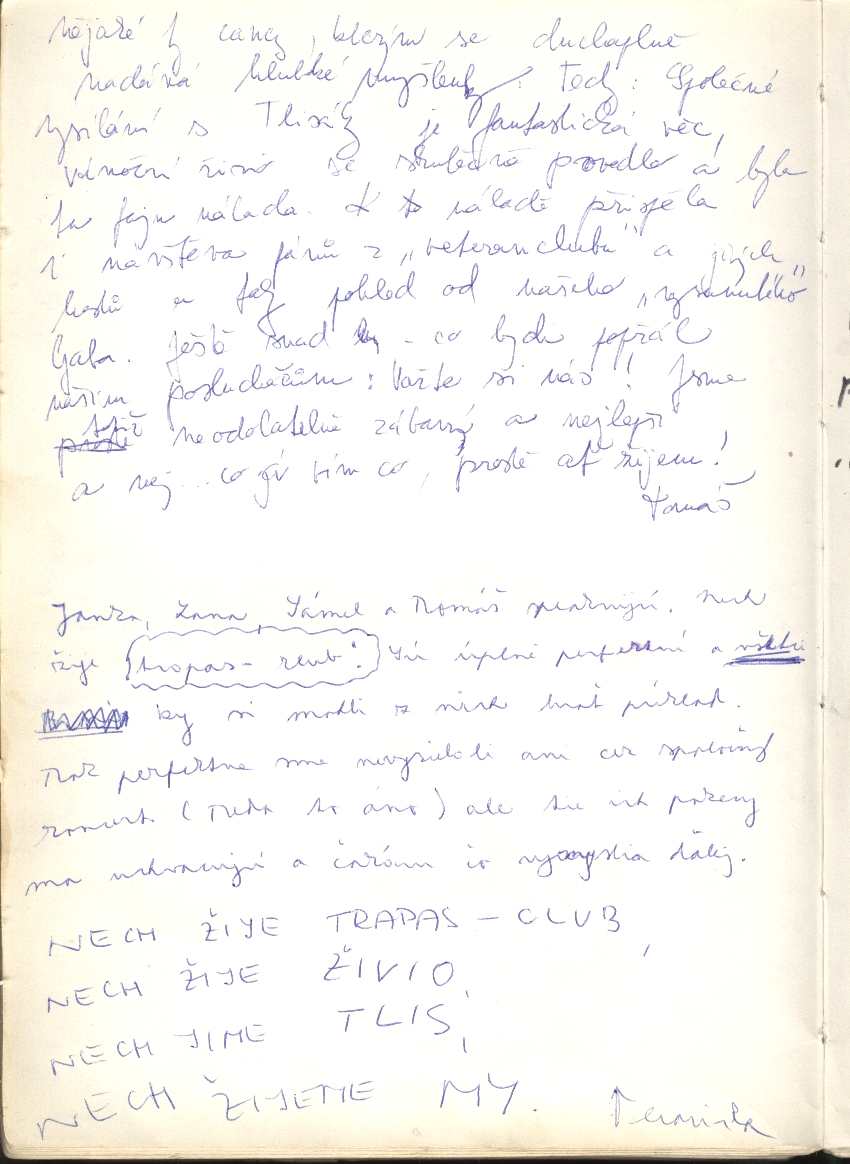 nějaké ty cancy, kterým se duchaplně
nadává hluboké myšlenky. Tedy: Společné
vysílání s Tlisáky je fantastická věc,
vánoční živio se skutečně povedlo a byla
tu fajn nálada. K té náladě přispěla
i návštěva pánů z "veteranclubu" a jiných
hostů a taky pohled od našeho "vysanutého"
Gaba. Ještě snad - co bych popřál
našim posluchačům: Važte si nás! Jsme
totiž neodolatelně zábavný a nejlepší
a nej... co já vím co, prostě ať žijem!
Tomáš
Janka, Zana, Kamil a Tomáš spavnujú. Nech
žije "trapas-club". Sú úplně perfektní a všetci
by si mohli z nich brať príklad.
Tak perfektne sme nevysielali ani cez spoločný
koncert (teda to áno) ale tie ich pokeny
ma uchvacujú a čakám čo vymyslia ďalej.
NECH ŽIJE TRAPAS-CLUB,
NECH ŽIJE ŽIVIO,
NECH JIME TLIS,
NECH ŽIJEME MY. Veronika